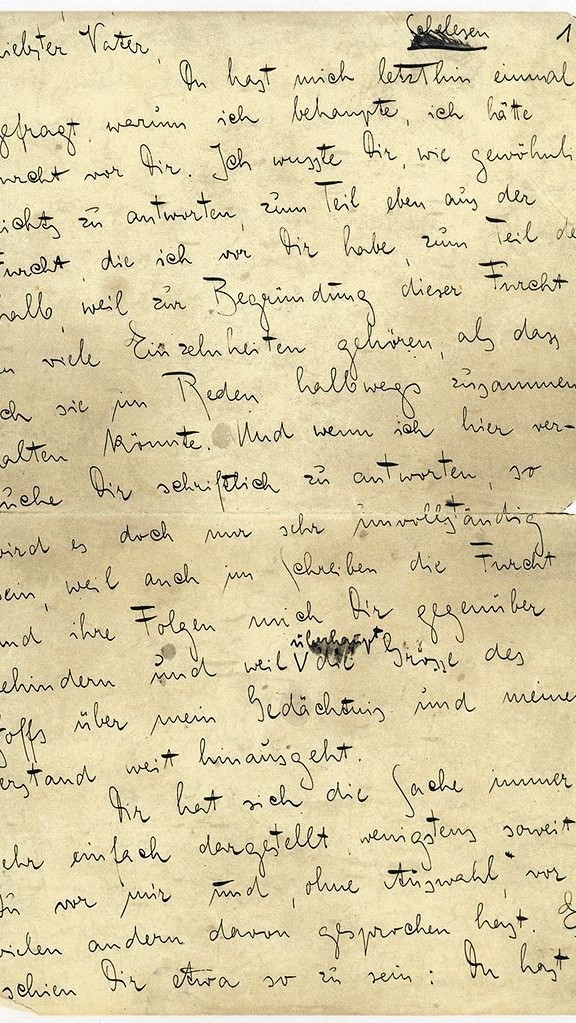 Schelesen 1
liebster Vater,
Du hast mich letzthin einmal
gefragt, warum ich behaupte, ich hätte
urcht vor Dir. Ich wusste Dir, wie gewöhnli
ichts zu antworten, zum Teil eben aus der
Furcht, die ich vor Dir habe, zum Teil de
halb, weil zur Begründung dieser Furcht
u viele Einzelnheiten gehören, als dass
ch sie im Reden halbwegs zusammen
alten könnte. Und wenn ich hier ver-
uche Dir schriftlich zu antworten, so
wird es doch nur sehr unvollständig
sein, weil auch im Schreiben die Furcht
und ihre Folgen mich Dir gegenüber
behindern und weil überhaupt die Grösse des
toffs über mein Gedächtnis und meine
erstand weit hinausgeht.
Dir hat sich die Sache immer
ehr einfach dargestellt, wenigstens soweit
Du vor mir und, ohne Auswahl, vor
vielen andern davon gesprochen hast. E
schien Dir etwa so zu sein: Du hast